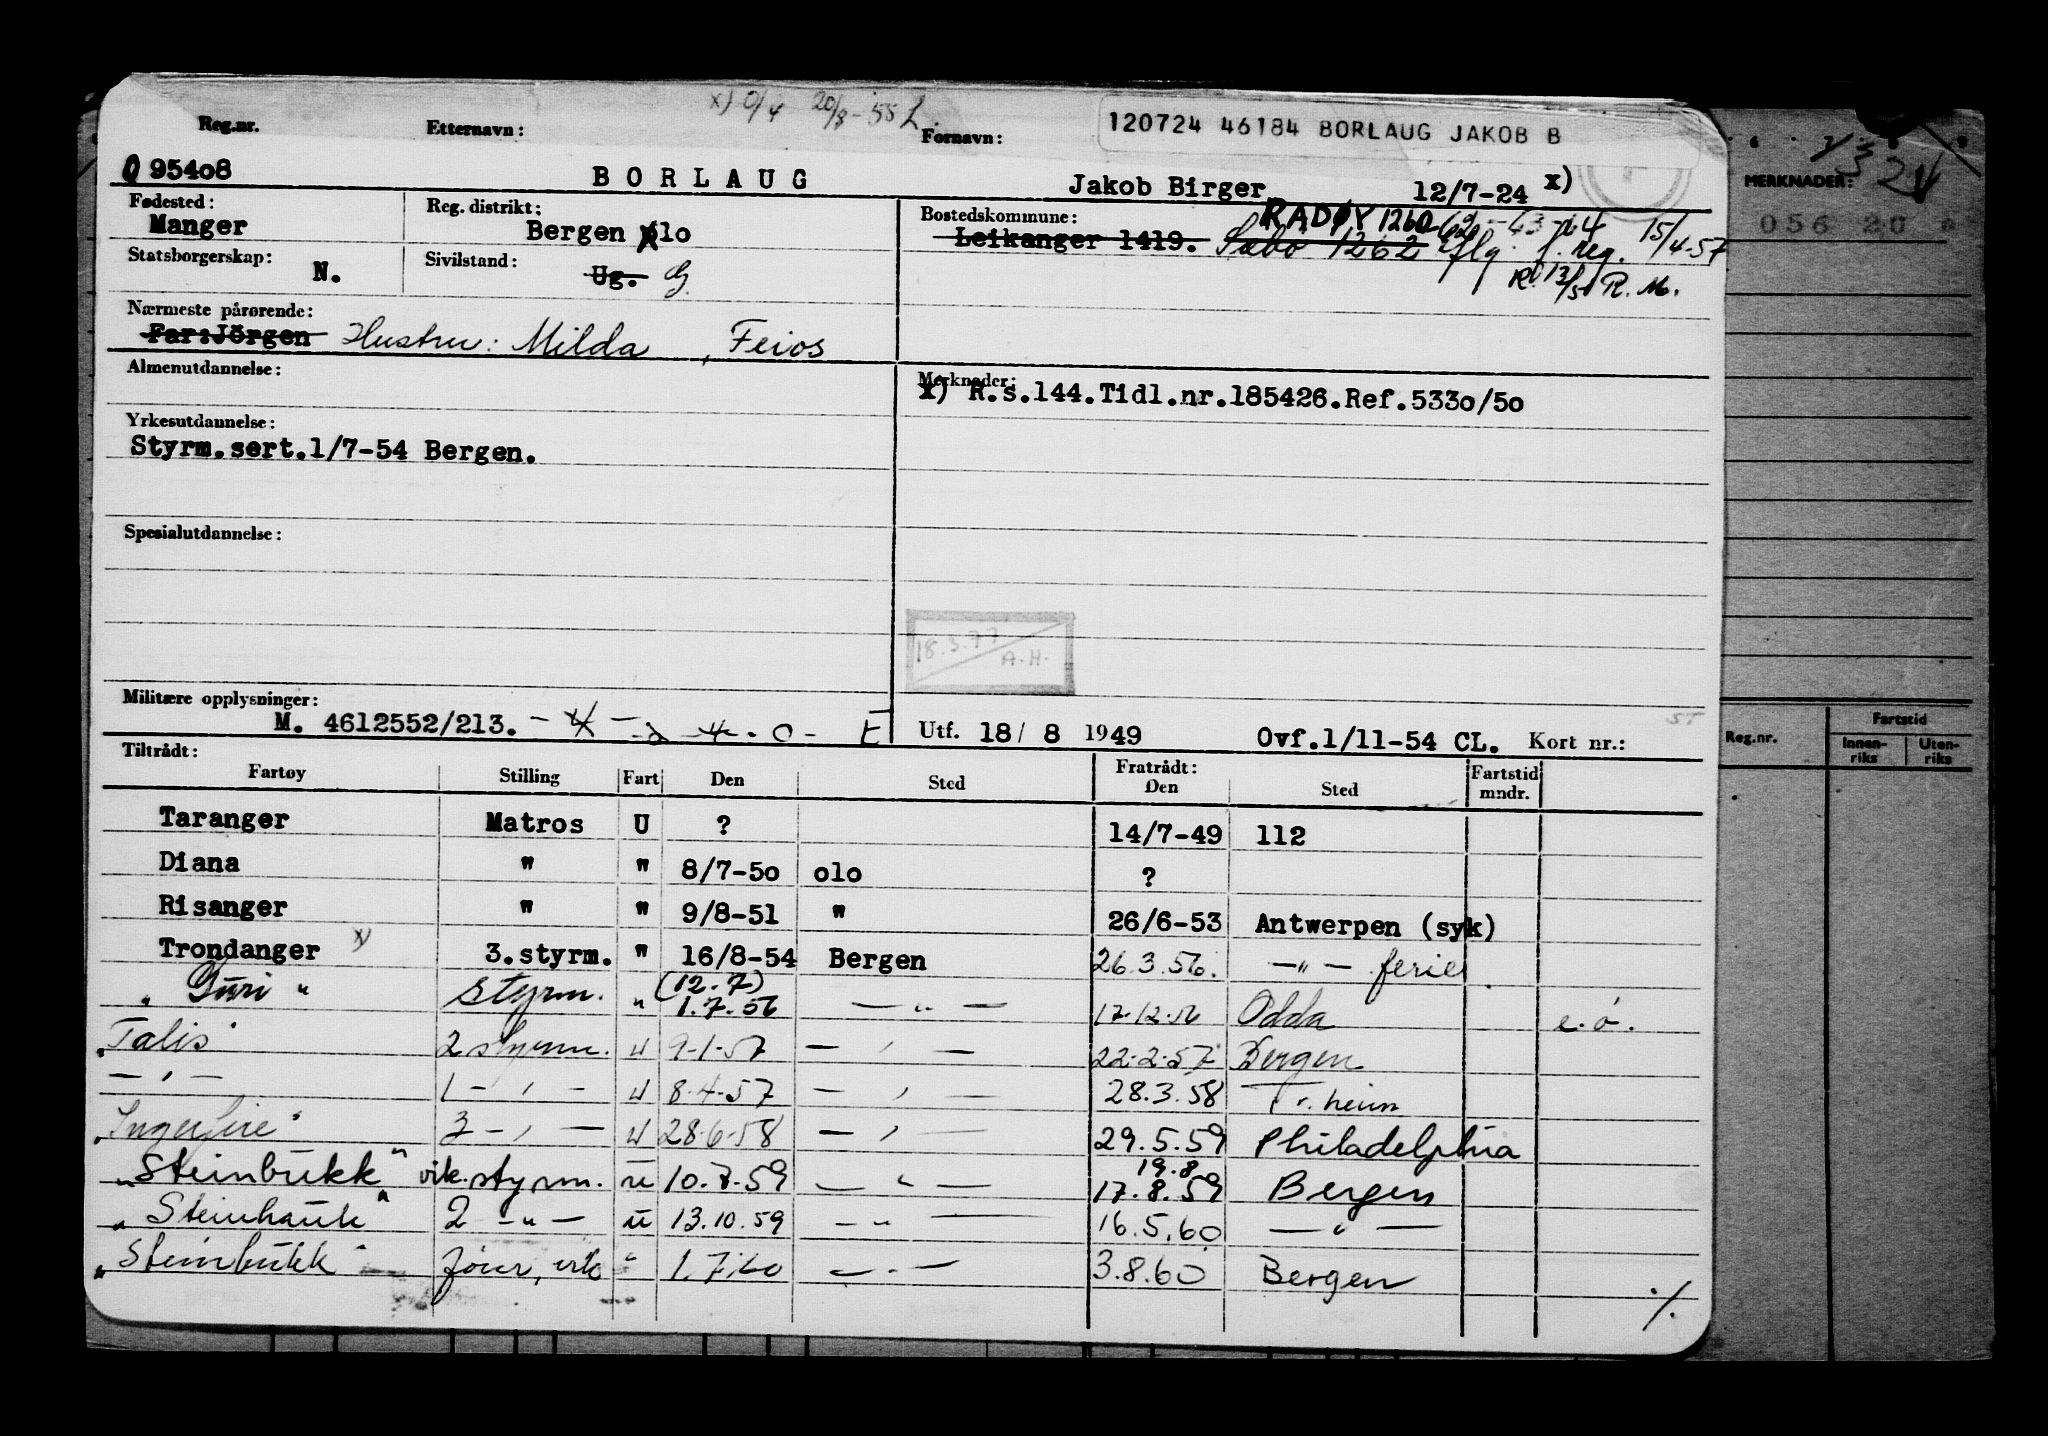 x) 0/4 20/8-55 L.
120724 46184 BORLAUG JAKOB B
Reg.nr. Etternavn: Fornavn:
095408 BORLAUG Jakob Birger 12/7-24 x)
Fødested: Manger
Reg. distrikt: Bergen olo
Bostedskommune: RADØY 1260
Leikanger 1419. Sæbø 1262 iflg. f. reg. 15/4-57
R. M.
Statsborgerskap: N.
Sivilstand: Ug. G
Nærmeste pårørende:
Far:Jörgen Hustru: Milda, Feios
Almenutdannelse:
Merknader:
X) R.s.144.Tidl.nr.185426.Ref.5330/50
Yrkesutdannelse:
Styrm.sert.1/7-54 Bergen.
Spesialutdannelse:
18.3.77
A.H.
Militære opplysninger:
M. 4612552/213.
Utf. 18/ 8 1949 Ovf.1/11-54 CL. Kort nr.:
Tiltrådt: Fratrådt:
Fartøy Stilling Fart Den Sted Den Sted Fartstid mndr.
Taranger Matros U ? 14/7-49 112
Diana " " 8/7-50 olo ?
Risanger " " 9/8-51 " 26/6-53 Antwerpen (syk)
Trondanger x) 3.styrm. " 16/8-54 Bergen 26.3.56. -"- ferie
(12.7)
"Guri" styrm. " 1.7.56 -"- 17.12.56 Odda e.o.
"Talis" 2 styrm. u 9-1-57 -"- 22-2-57 Bergen
-"- 1 -"- u 8-4-57 -"- 28.3.58 Tr.heim
"Ingerfire" 3 -"- u 28-6-58 -"- 29.5.59 Philadelphia
19.8
"Steinbukk" vik.styrm. u 10.7.59 -"- 17.8.59 Bergen
"Steinhauk" 2 -"- u 13.10.59 -"- 16.5.60 -"-
"Steinbukk" " 1.7.60 -"- 3.8.60 Bergen
./.
MERKNADER:
056 20
Reg.nr. Fartstid
Innenriks Utenriks